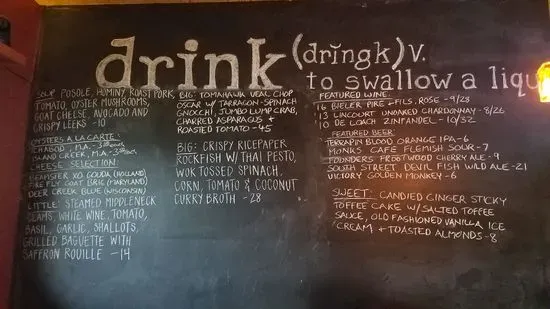 drink (drĭngk) v.
to swallow a liqu
SOUP: POSOLE, HOMINY, ROAST PORK,
TOMATO, OYSTER MUSHROOMS,
GOAT CHEESE, AVOCADO AND
CRISPY LEEKS -10
OYSTERS A LA CARTE:
ISLAND CREEK, M.A.
CHEESE SELECTION:
BEEMSTER XO GOUDA (HOLLAND)
FIRE FLY GOAT BRIE (MARYLAND)
DEER CREEK BLUE (WISCONSIN)
LITTLE: STEAMED MIDDLENECK
CLAMS, WHITE WINE, TOMATO,
BASIL, GARLIC, SHALLOTS,
GRILLED BAGUETTE WITH
SAFFRON ROUILLE -14
BIG: TOMAHAWK VEAL CHOP
OSCAR W/ TARRAGON-SPINACH
GNOCCHI, JUMBO LUMP CRAB,
CHARRED ASPARAGUS +
ROASTED TOMATO -45
BIG: CRISPY RICEPAPER
ROCKFISH W/ THAI PESTO,
WOK TOSSED SPINACH,
CORN, TOMATO & COCONUT
CURRY BROTH -28
FEATURED WINE:
16 BIELER PERE + FILS, ROSE - 9/28
13 LINCOURT UNOAKED CHARDONNAY - 8/26
10 DE LOACH ZINFANDEL - 10/32
FEATURED BEER:
TERRAPIN BLOOD ORANGE IPA - 6
MONKS CAFE FLEMISH SOUR - 7
FOUNDERS FROOTWOOD CHERRY ALE - 9
SOUTH STREET DEVIL FISH WILD ALE - 21
VICTORY GOLDEN MONKEY - 6
SWEET: CANDIED GINGER STICKY
TOFFEE CAKE W/ SALTED TOFFEE
SAUCE, OLD FASHIONED VANILLA ICE
CREAM + TOASTED ALMONDS - 8